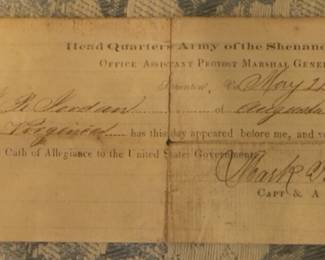 Head Quarters Army of the Shenan
Office Assistant Provost Marshal Gener
May 2
Jordan of Augusta
Virginia has this day appeared before me, and
Oath of Allegiance to the United States Government.
Mark
Capt & A